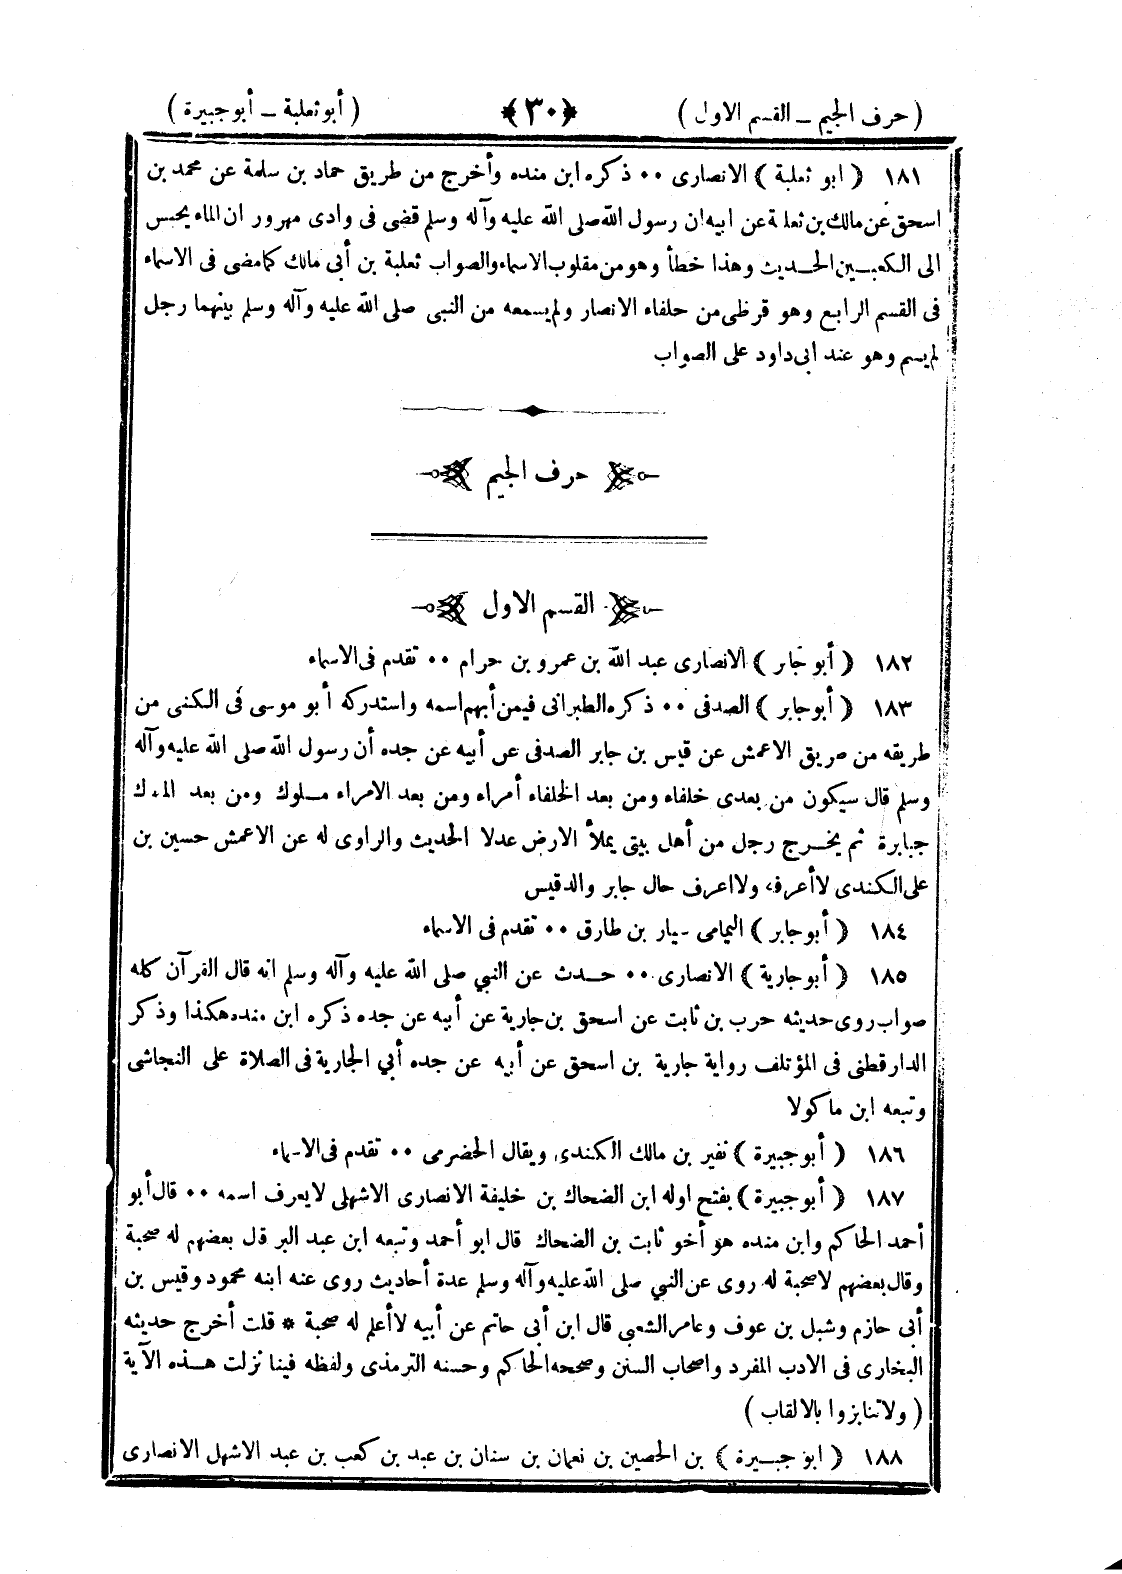 (حرف الجيم ــ القسم الاول) ﴿٣٠﴾ (أبو ثعلبة ــ أبو جبيرة)
١٨١ ﴿ ابو ثعلبة ﴾ الانصارى ٠٠ ذكره ابن منده وأخرج من طريق حماد بن سلمة عن محمد بن
اسحق عن مالك بن ثعلبة عن ابيه ان رسول الله صلى الله عليه وآله وسلم قضى فى وادى مهرور ان الماء يحبس
الى الكعبين الحديث وهذا خطأ وهو من مقلوب الاسماء والصواب ثعلبة بن أبى مالك كما مضى فى الاسماء
فى القسم الرابع وهو قرظى من حلفاء الانصار ولم يسمعه من النبى صلى الله عليه وآله وسلم بينهما رجل
لم يسم وهو عند ابى داود على الصواب
حرف الجيم
القسم الاول
١٨٢ ﴿ أبو جابر ﴾ الانصارى عبد الله بن عمرو بن حرام ٠٠ تقدم فى الاسماء
١٨٣ ﴿ أبو جابر ﴾ الصدفى ٠٠ ذكره الطبرانى فيمن أبهم اسمه واستدركه أبو موسى فى الكنى من
طريقه من طريق الاعمش عن قيس بن جابر الصدفى عن أبيه عن جده أن رسول الله صلى الله عليه وآله
وسلم قال سيكون من بعدى خلفاء ومن بعد الخلفاء أمراء ومن بعد الامراء ملوك ومن بعد الملوك
جبابرة ثم يخرج رجل من أهل بيتى يملأ الارض عدلا الحديث والراوى له عن الاعمش حسين بن
على الكندى لا أعرفه ولا اعرف حال جابر والد قيس
١٨٤ ﴿ أبو جابر ﴾ اليمامى سيار بن طارق ٠٠ تقدم فى الاسماء
١٨٥ ﴿ أبو جارية ﴾ الانصارى ٠٠ حدث عن النبي صلى الله عليه وآله وسلم انه قال القرآن كله
صواب روى حديثه حرب بن ثابت عن اسحق بن جارية عن أبيه عن جده ذكره ابن منده هكذا وذكر
الدارقطنى فى المؤتلف رواية جارية بن اسحق عن أبيه عن جده أبي الجارية فى الصلاة على النجاشى
وتبعه ابن ماكولا
١٨٦ ﴿ أبو جبيرة ﴾ نفير بن مالك الكندى ويقال الحضرمى ٠٠ تقدم فى الاسماء
١٨٧ ﴿ أبو جبيرة ﴾ بفتح اوله ابن الضحاك بن خليفة الانصارى الاشهلى لا يعرف اسمه ٠٠ قال أبو
أحمد الحاكم وابن منده هو أخو ثابت بن الضحاك قال ابو أحمد وتبعه ابن عبد البر قال بعضهم له صحبة
وقال بعضهم لا صحبة له روى عن النبي صلى الله عليه وآله وسلم عدة أحاديث روى عنه ابنه محمود وقيس بن
أبى حازم وشبل بن عوف وعامر الشعبى قال ابن أبى حاتم عن أبيه لا أعلم له صحبة * قلت أخرج حديثه
البخارى فى الادب المفرد واصحاب السنن وصححه الحاكم وحسنه الترمذى ولفظه فينا نزلت هذه الآية
( ولا تنابزوا بالالقاب )
١٨٨ ﴿ ابو جبيرة ﴾ بن الحصين بن نعمان بن سنان بن عبد بن كعب بن عبد الاشهل الانصارى